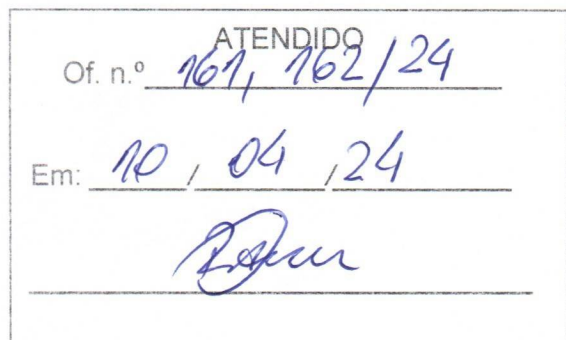 ATENDIDO
Of. n.º 161, 162/24
Em: 10 / 04 / 24